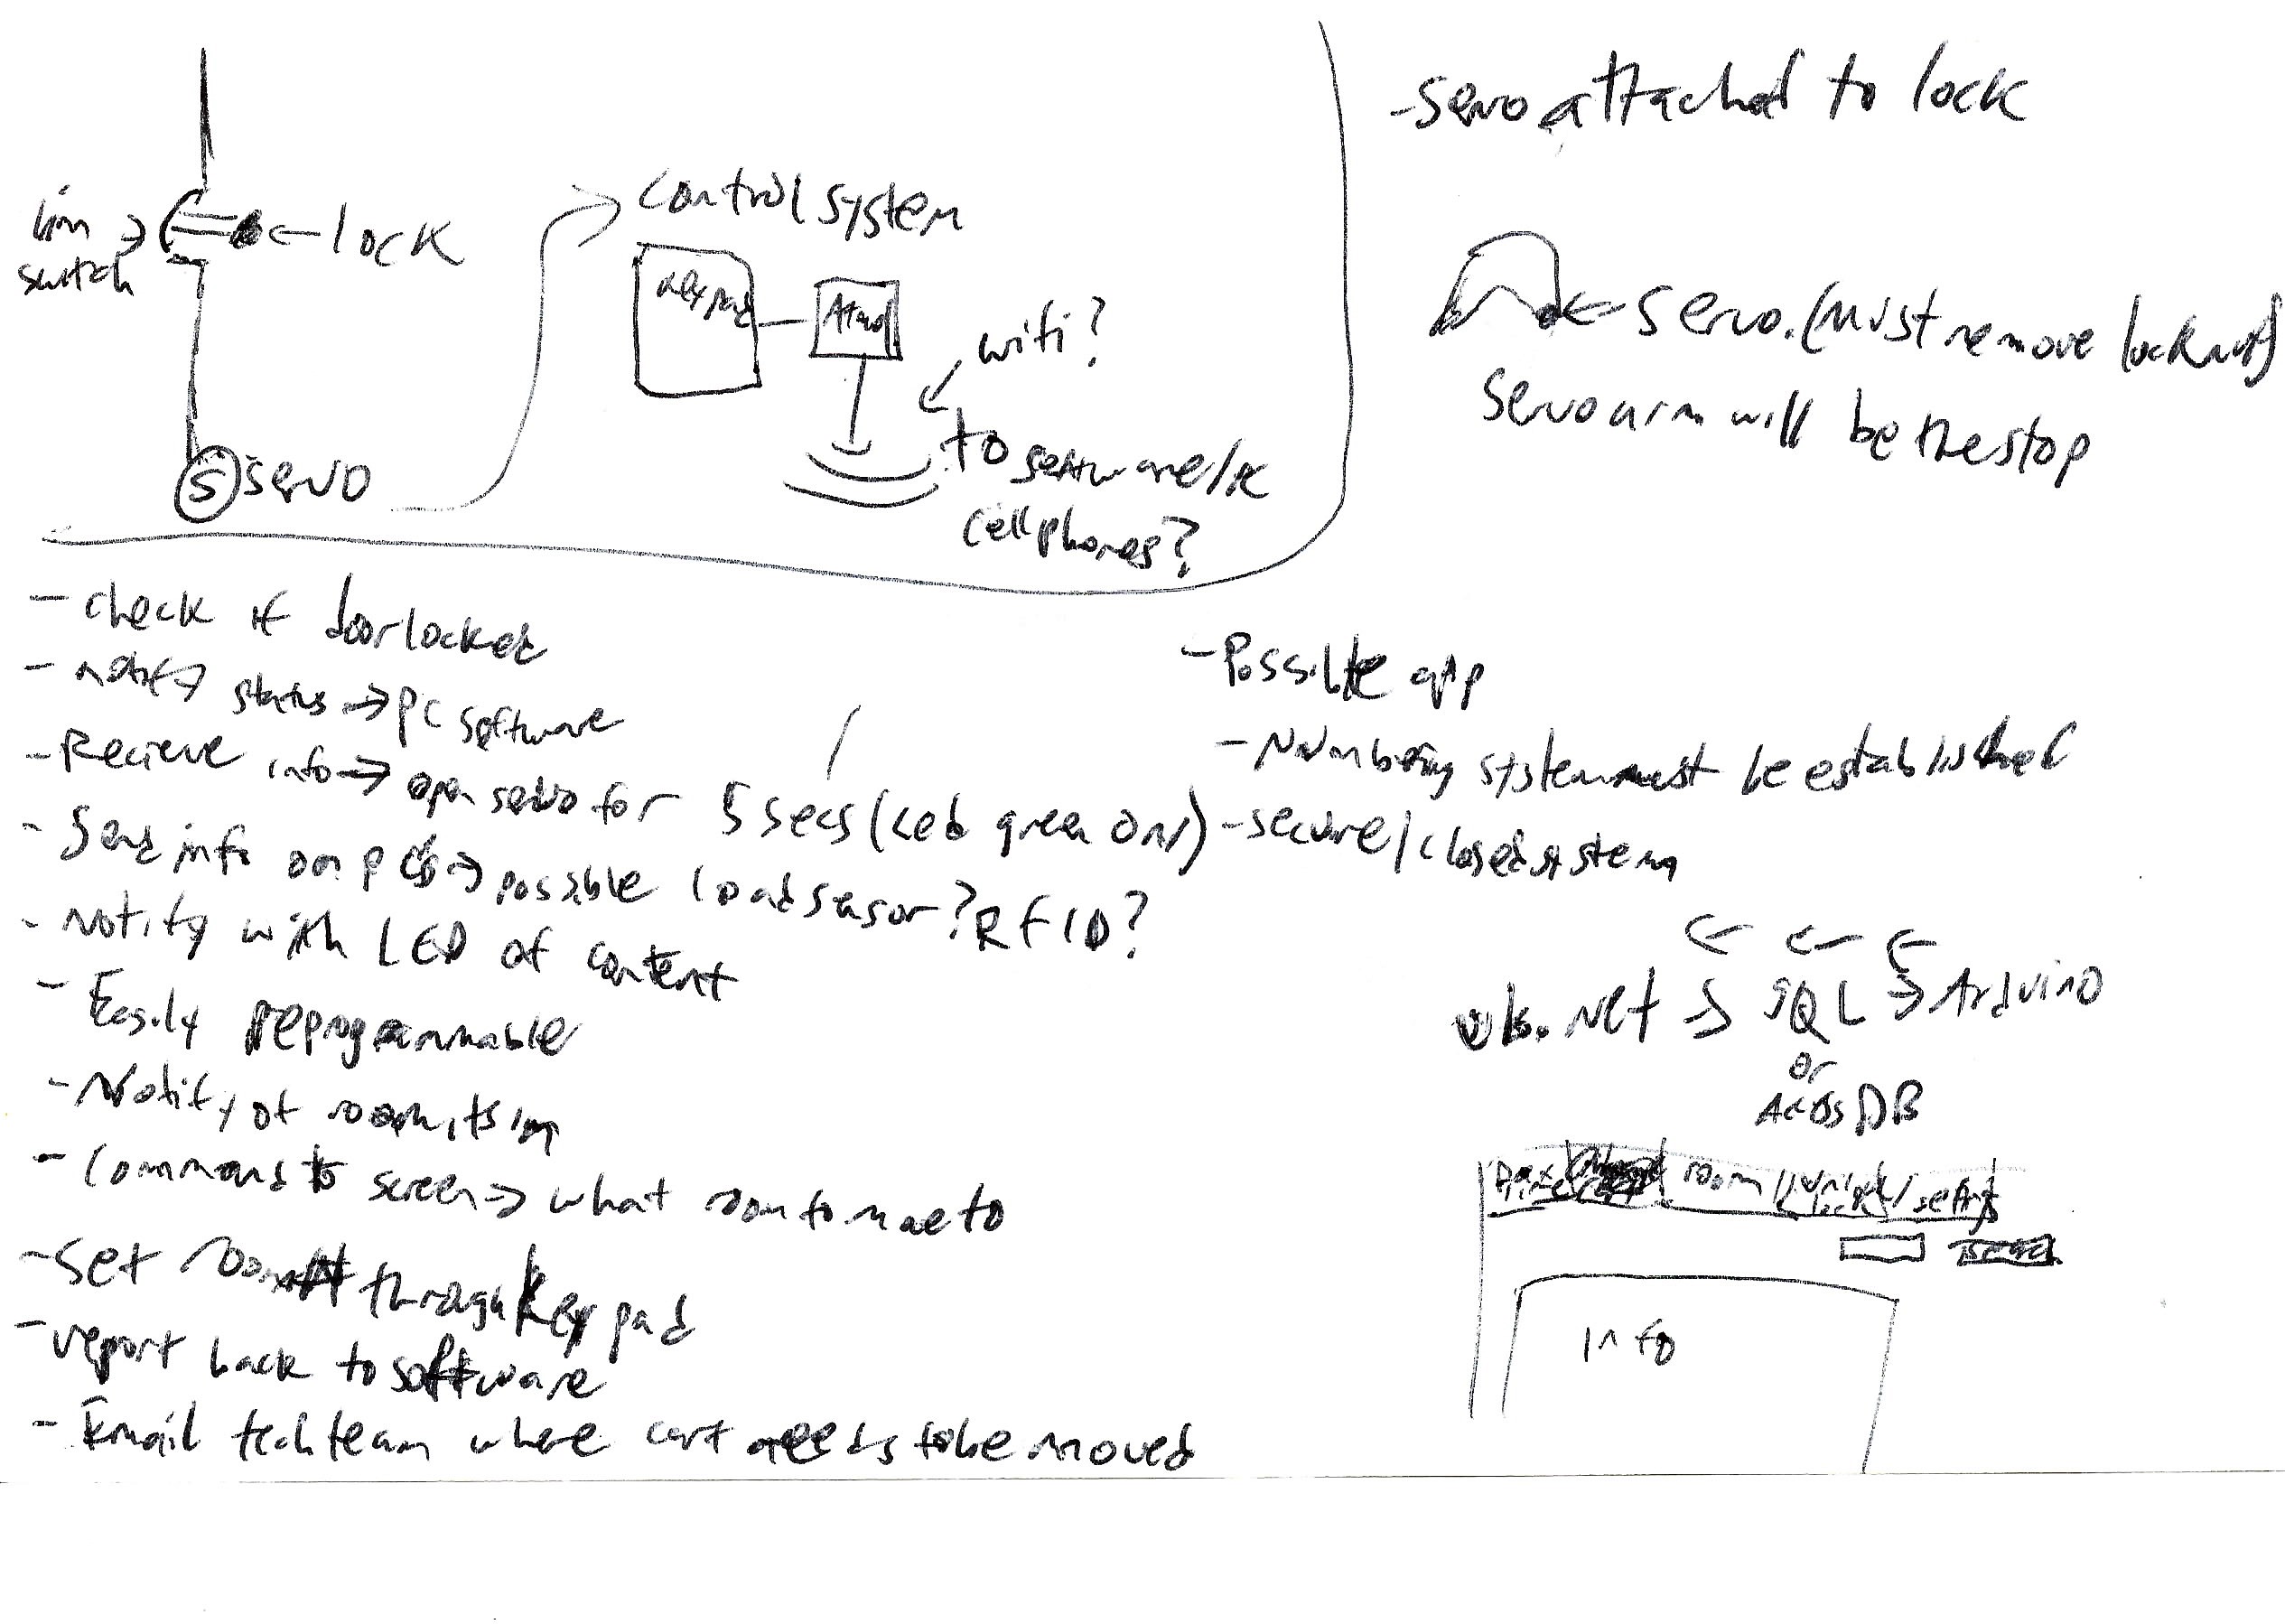 lim
switch
lock
S servo
control system
keypad
wifi?
to software/PC
cellphones?
-servo attached to lock
servo. (Must remove lock nut)
servo arm will be the stop
- check if door locked
- notify status → PC software
- Recieve info → open servo for 5 secs (Led green on)
- Send info on PCs → possible load sensor? RFID?
- Notify with LED of content
- Easily reprogrammable
- Notify of room its in
- Command to screen → what room to move to
- set room # through keypad
- report back to software
- Email tech team where cart needs to be moved
- Possible app
- Numbering system must be established
- secure/closed system
vb.net → SQL → Arduino
or
DB
room / / settings
info